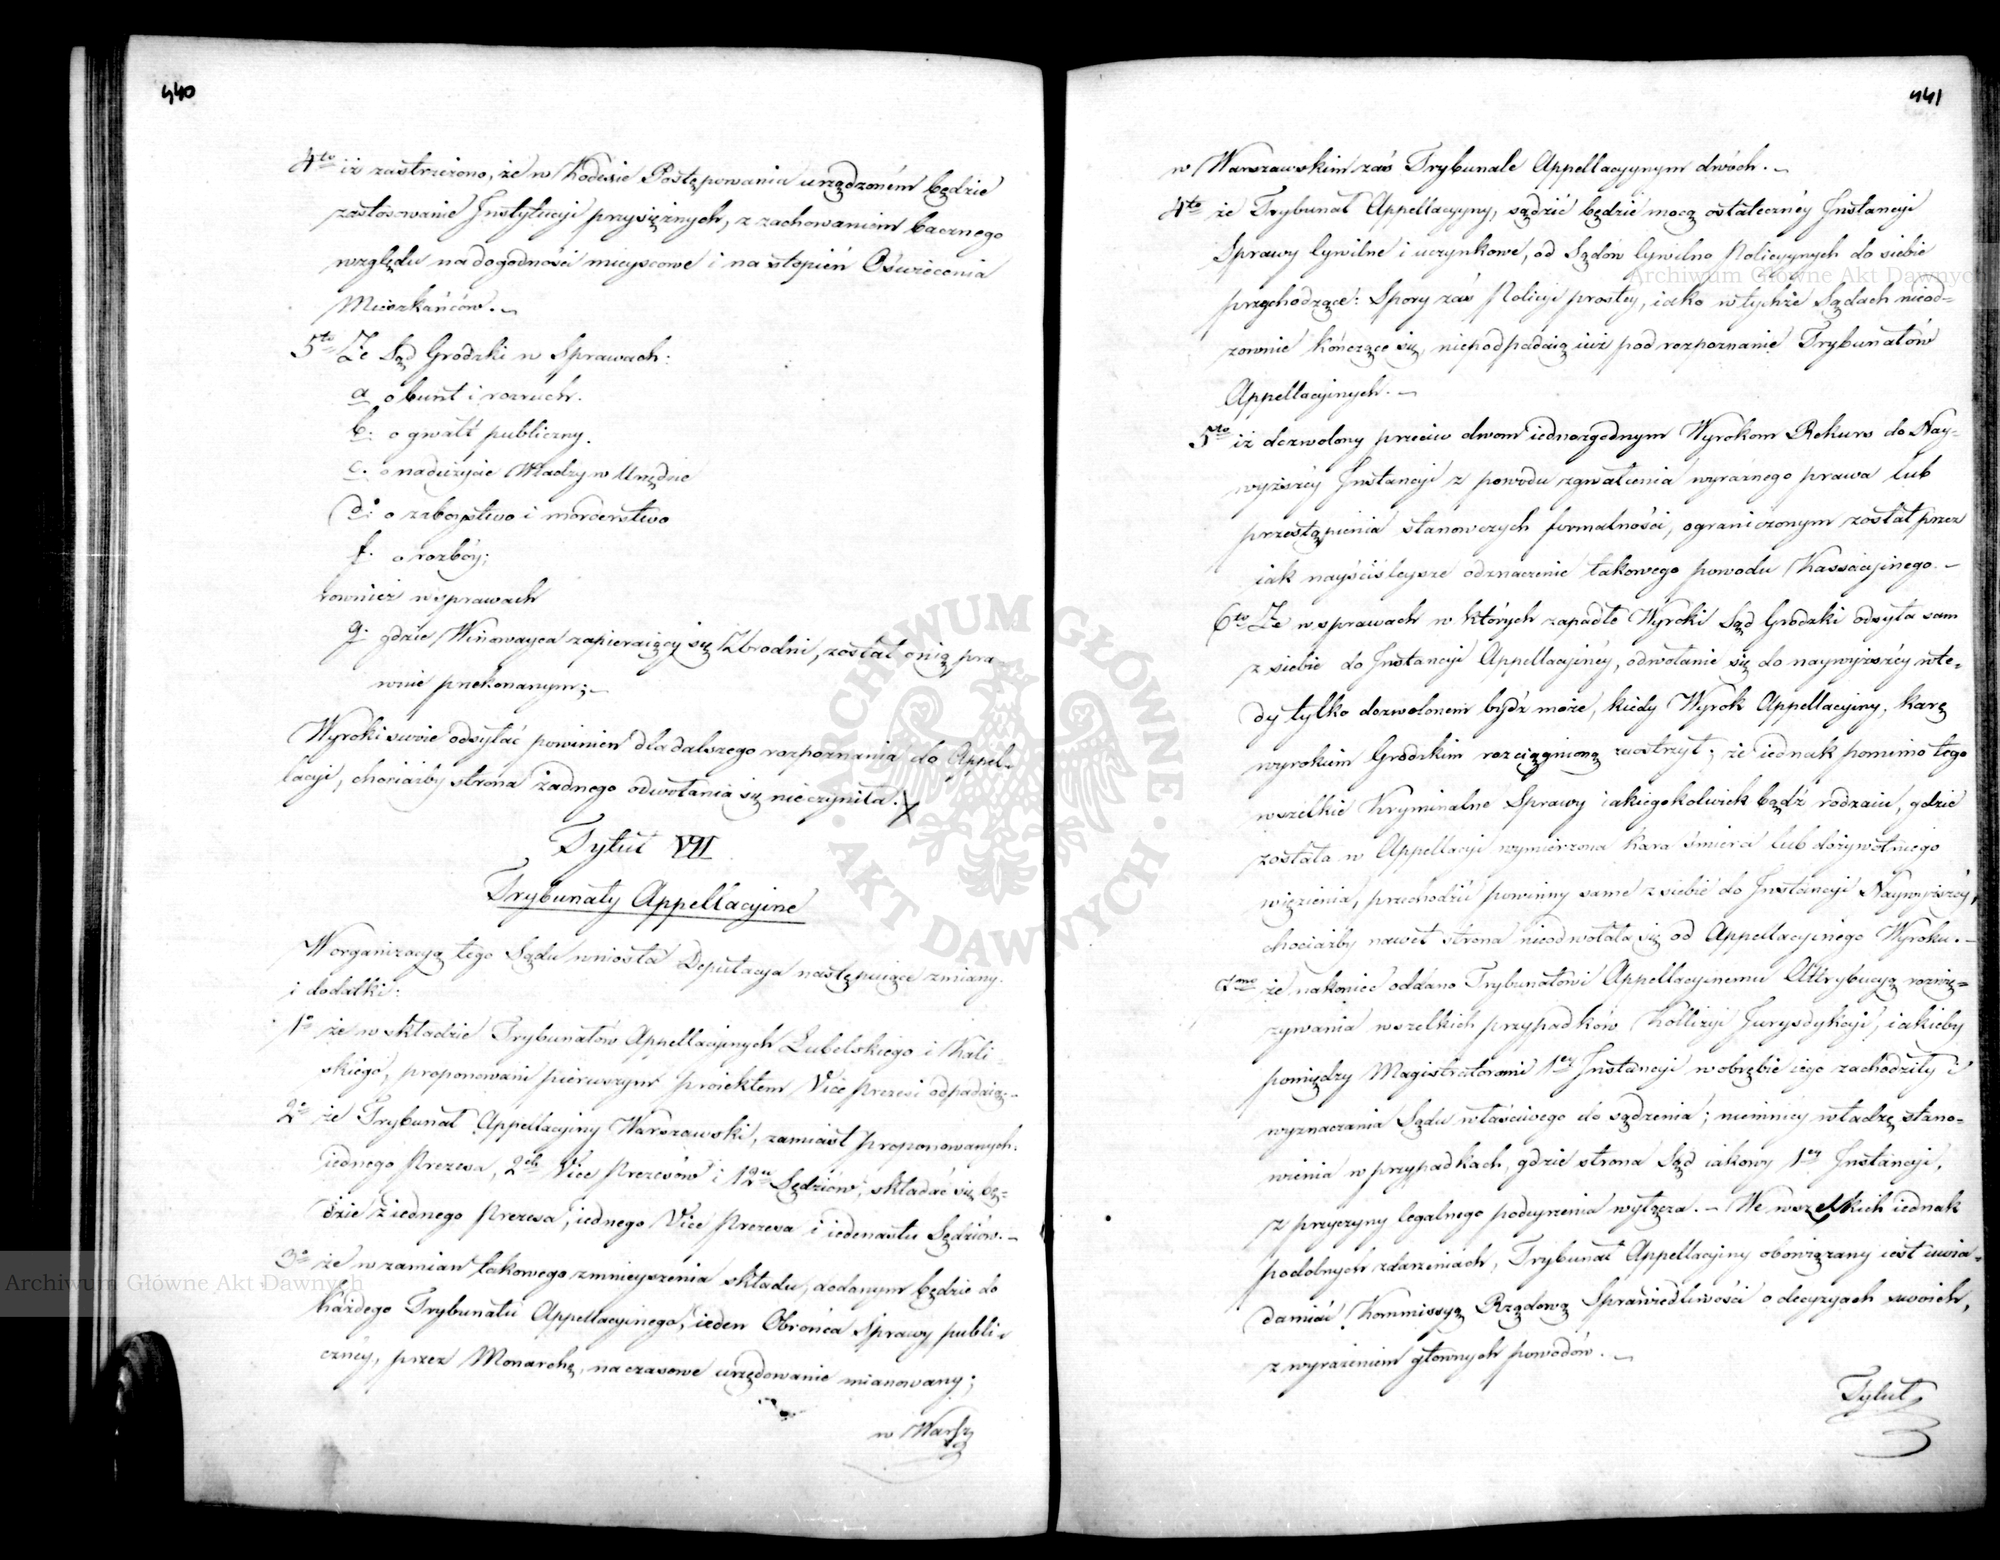 440
4to iż zastrzeżono, że w Kodexie Postępowania urządzoném będzie
zastosowanie Instytucyi przysięgłych, z zachowaniem bacznego
względu na dogodności mieyscowe i na stopień Oświecenia
Mieszkańców.
5to Że Sąd Grodzki w Sprawach:
a o bunt i rozruch.
b: o gwałt publiczny.
c. o nadużycie Władzy w Urzędzie
d: o zaboystwo i morderstwo
f. o rozbóy;
również w sprawach
g. gdzie Winowayca zapieraiący się Zbrodni, został o nią pra-
wnie przekonanym;
Wyroki swoie odsyłać powinien dla dalszego rozpoznania do Appel-
lacyi, chociażby strona żadnego odwołania się nie czyniła. X
Tytuł VII
Trybunały Appellacyine
W organizacyą tego Sądu wniosła Deputacya następuiące zmiany
i dodatki:
1o że w składzie Trybunałów Appellacyinych Lubelskiego i Kali-
skiego, proponowani pierwszym proiektem Vice Prezesi odpadaią;
2o że Trybunał Appellacyiny Warszawski, zamiast proponowanych
iednego Prezesa, 2ch Vice Prezesów i 12u Sędziów, składać się bę-
dzie z iednego Prezesa, iednego Vice Prezesa i iedenastu Sędziów.
3o że w zamian takowego zmnieyszenia składu, dodanym będzie do
każdego Trybunału Appellacyinego, ieden Obrońca Sprawy publi-
cznéy, przez Monarchę, na czasowe urzędowanie mianowany;
w Warsz
441
w Warszawskim zaś Trybunale Appellacyynym dwóch.
4to że Trybunał Appellacyyny, sądzić będzie mocą ostatecznéy Instancyi
Sprawy Cywilne i uczynkowe, od Sądów Cywilno Policyynych do siebie
przychodzące: Spory zaś Policyi prostéy, iako w tychże Sądach nieod-
zownie kończące się, niepodpadaią iuż pod rozpoznanie Trybunałów
Appellacyinych.
5to iż dozwolony przeciw dwom iednozgodnym Wyrokom Rekurs do Nay-
wyższéy Instancyi z powodu zgwałcenia wyraźnego prawa lub
przestąpienia stanowczych formalności, ograniczonym został przez
iak nayściśleysze odznaczenie takowego powodu Kassacyinego.
6to Że w sprawach w których zapadłe Wyroki Sąd Grodzki odsyła sam
z siebie do Instancyi Appellacyinéy, odwołanie się do naywyższéy wte-
dy tylko dozwolonem bydź może, kiedy Wyrok Appellacyiny, karę
wyrokiem Grodzkim rozciągnioną zaostrzył; że iednak pomimo tego
wszelkie Kryminalne Sprawy iakiegokolwiek bądź rodzaiu, gdzie
została w Appellacyi wymierzona kara śmierci lub dożywotniego
więzienia, przechodzić powinny same z siebie do Instancyi Naywyższéy,
chociażby nawet strona nieodwołała się od Appellacyinego Wyroku.
7mo że nakoniec oddano Trybunałowi Appellacyinemu Attrybucyą rozwią-
zywania wszelkich przypadków Kollizyi Jurysdykcyi, iakieby
pomiędzy Magistraturami 1éy Instancyi w obrębie iego zachodziły i
wyznaczania Sądu właściwego do sądzenia; niemniéy władzę stano-
wienia w przypadkach, gdzie strona Sąd iakowy 1éy Instancyi,
z przyczyny legalnego podeyrzenia wyłącza. We wszelkich iednak
podobnych zdarzeniach, Trybunał Appellacyiny obowiązany iest uwia-
damiać Kommissyą Rządową Sprawiedliwości o decyzyach swoich,
z wyrażeniem głównych powodów.
Tytuł
Archiwum Główne Akt Dawnych
Archiwum Główne Akt Dawnych
ARCHIWUM GŁÓWNE · AKT DAWNYCH ·